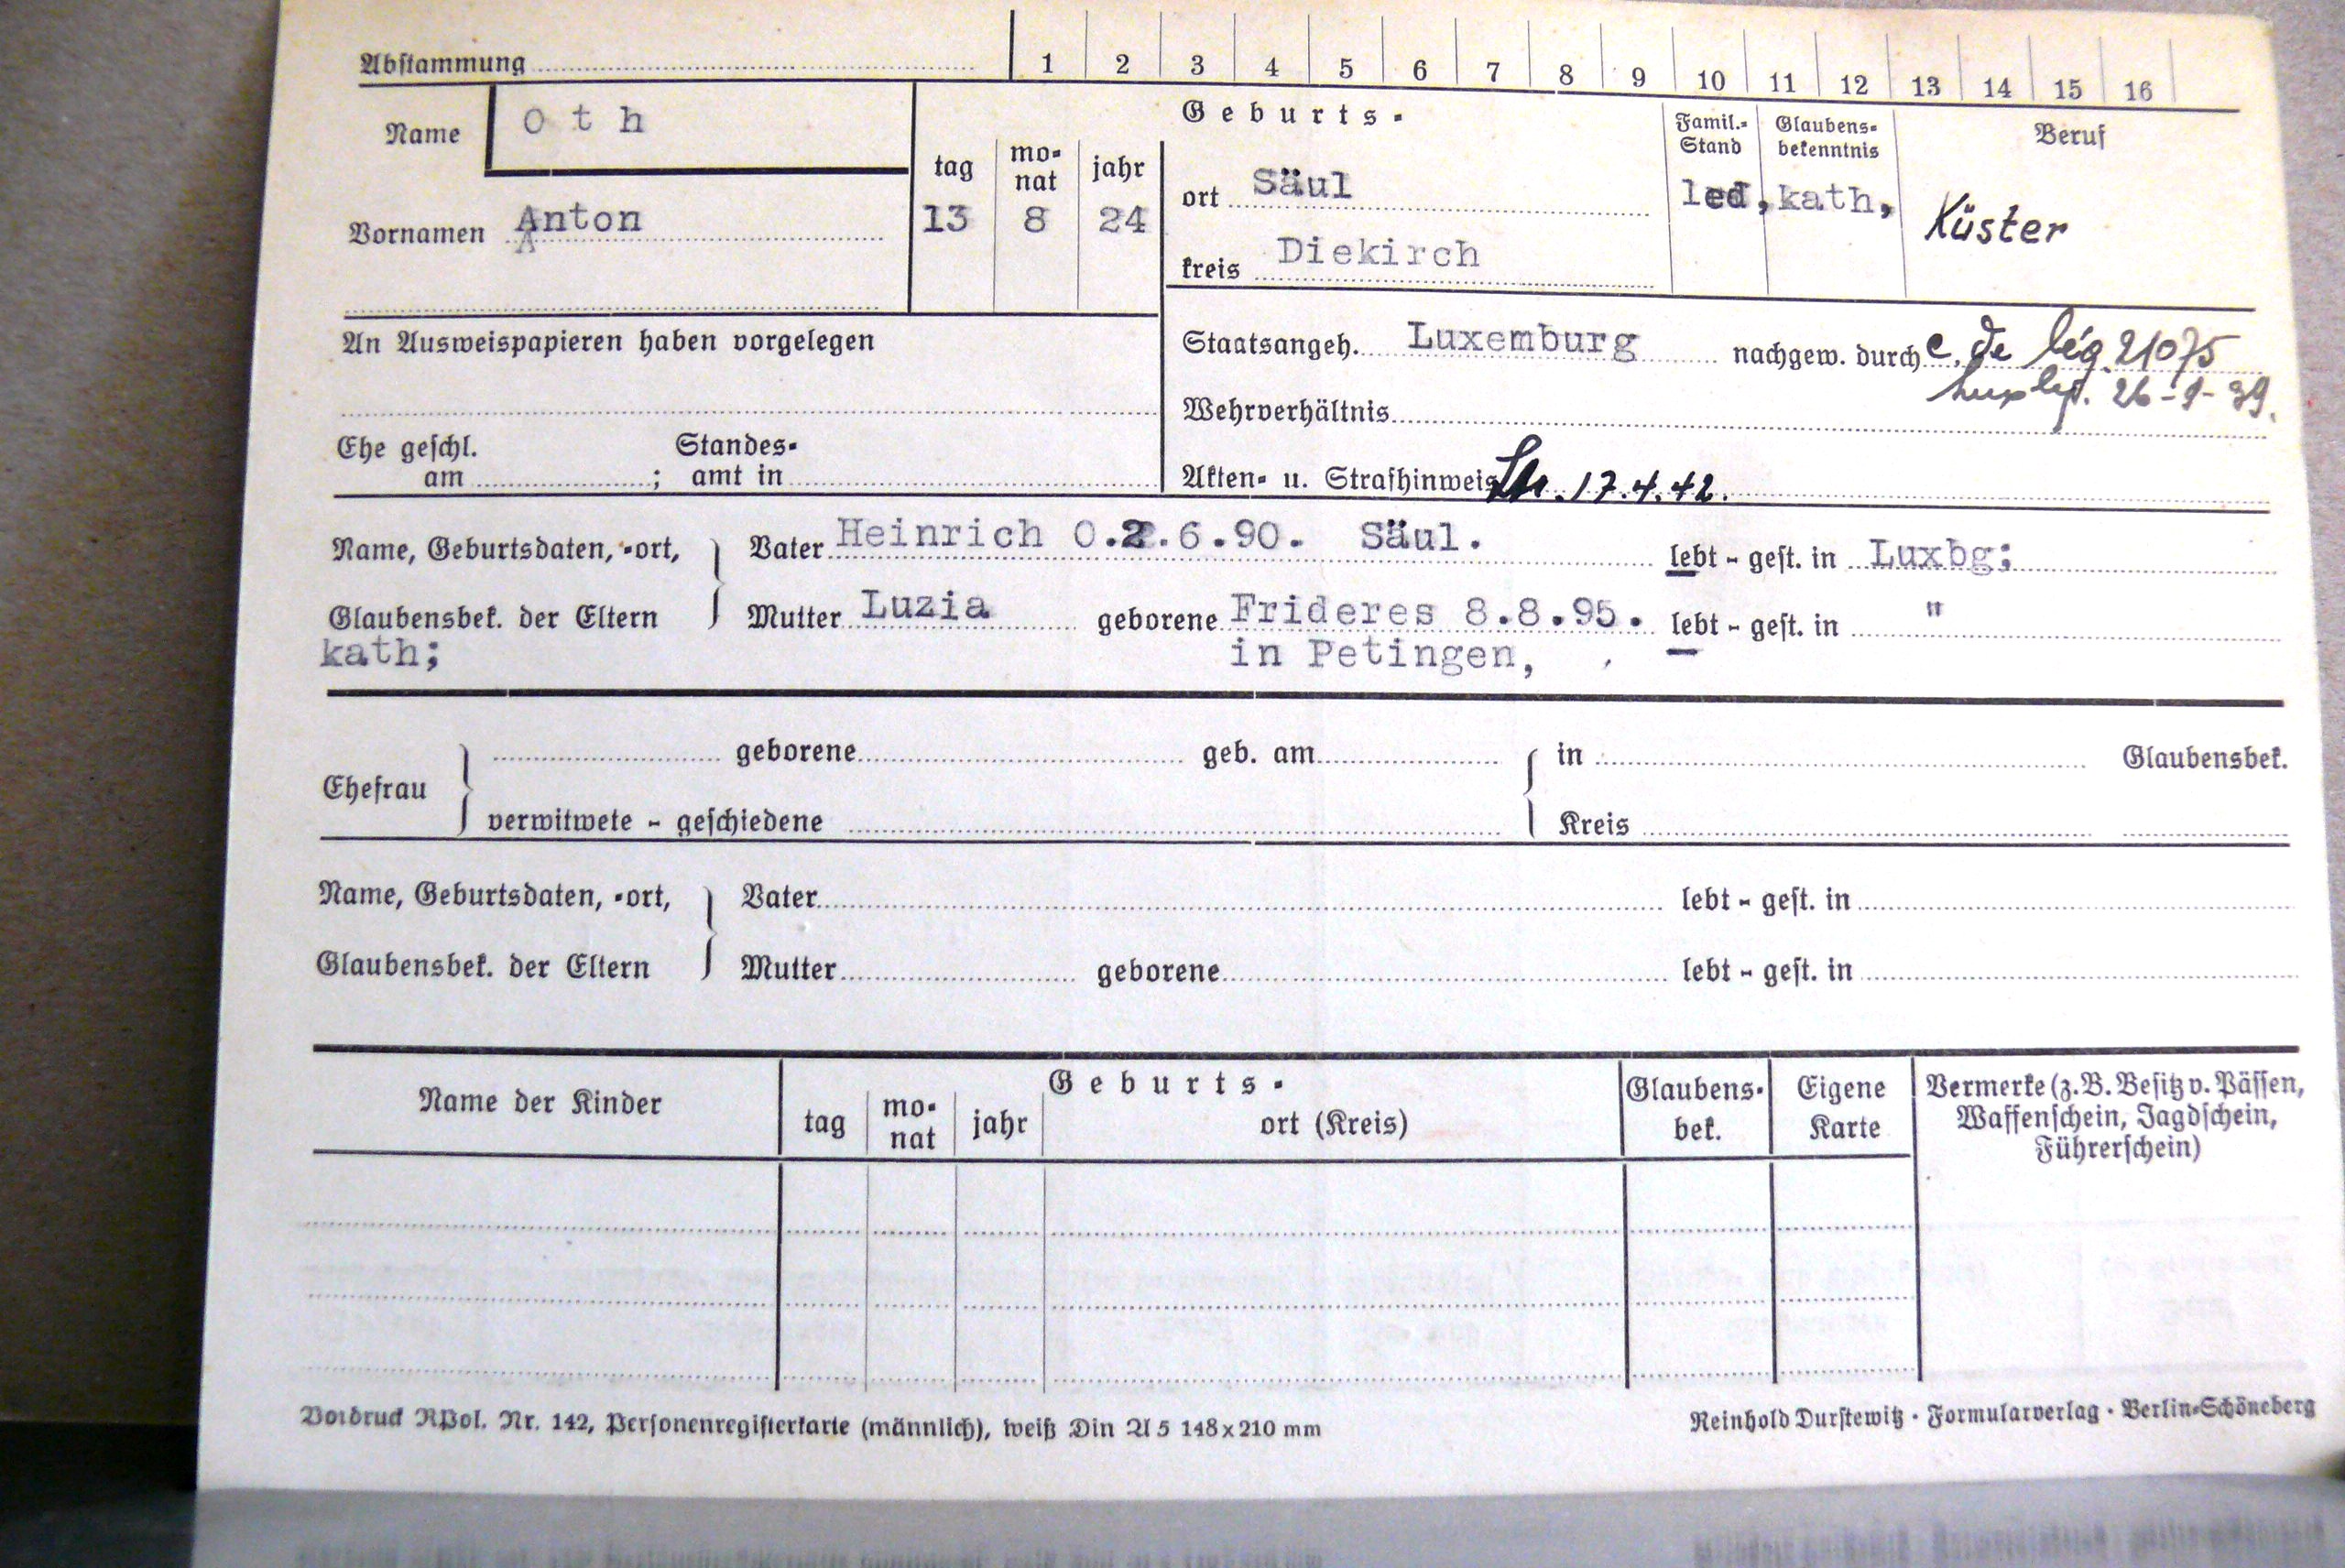 Abstammung 1 2 3 4 5 6 7 8 9 10 11 12 13 14 15 16
Name Oth
Geburts-
tag monat jahr
Famil.-Stand Glaubensbekenntnis Beruf
Vornamen Anton 13 8 24
ort Säul led, kath, Küster
kreis Diekirch
An Ausweispapieren haben vorgelegen
Staatsangeh. Luxemburg nachgew. durch c. de lég. 21075
26-9-39.
Wehrverhältnis
Ehe geschl. am ; Standesamt in
Akten- u. Strafhinweis 17.4.42.
Name, Geburtsdaten, -ort, Vater Heinrich O.2.6.90. Säul. lebt - gest. in Luxbg;
Glaubensbek. der Eltern Mutter Luzia geborene Frideres 8.8.95. lebt - gest. in "
kath; in Petingen,
Ehefrau geborene geb. am in Glaubensbek.
verwitwete - geschiedene Kreis
Name, Geburtsdaten, -ort, Vater lebt - gest. in
Glaubensbek. der Eltern Mutter geborene lebt - gest. in
Name der Kinder
Geburts-
tag monat jahr ort (Kreis)
Glaubens-
bek.
Eigene
Karte
Vermerke (z. B. Besitz v. Pässen,
Waffenschein, Jagdschein,
Führerschein)
Vordruck RPol. Nr. 142, Personenregisterkarte (männlich), weiß Din A 5 148 x 210 mm
Reinhold Durstewitz · Formularverlag · Berlin-Schöneberg